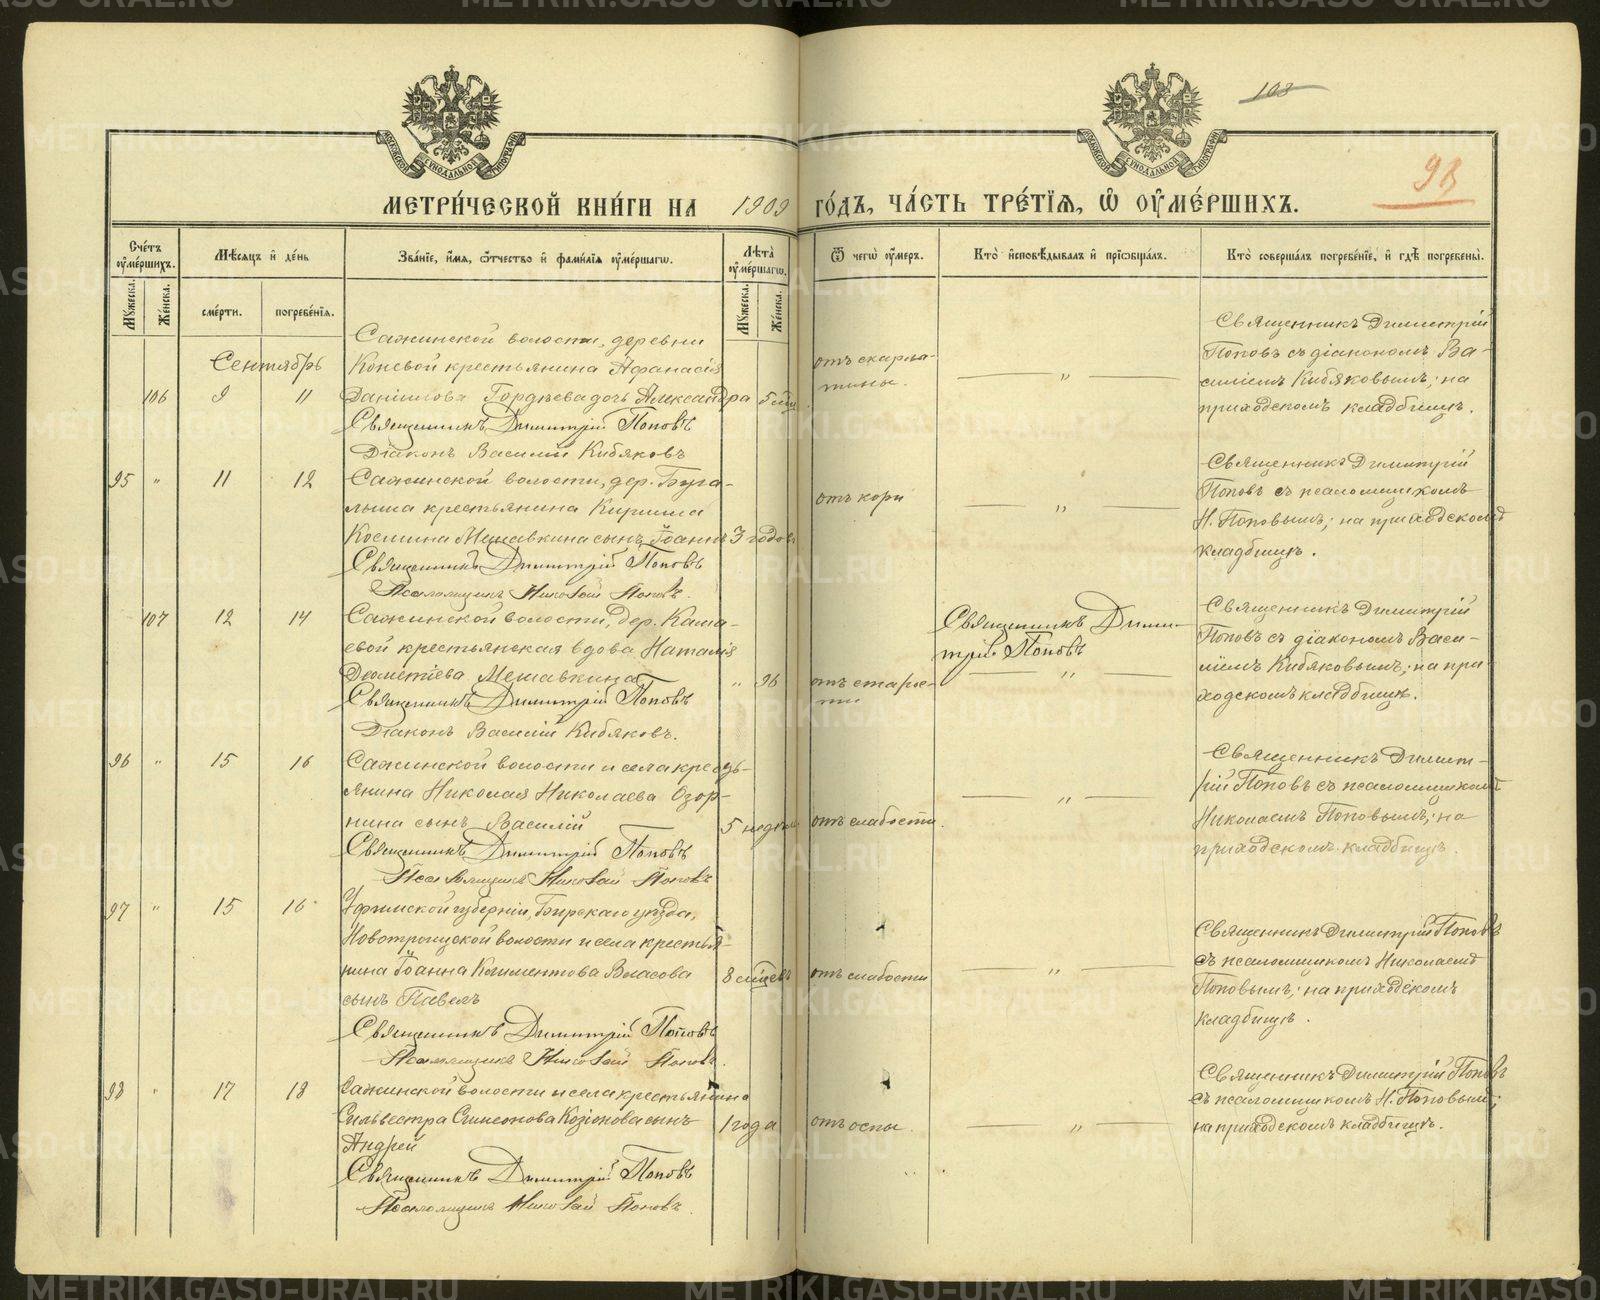 108
93
МЕТРИ́ЧЕСКОЙ КНИ́ГИ НА 1909 ГО́ДЪ, ЧА́СТЬ ТРЕ́ТЇѦ, Ѡ҆ ОУ҆МЕ́РШИХЪ.
Сче́тъ оу҆ме́ршихъ.
Мꙋ́жеска.
Же́нска.
Мѣ́сѧцъ и҆ де́нь
сме́рти.
погребе́нїѧ.
Зва́нїе, и҆́мѧ, ѻ҆́тчество и҆ фами́лїѧ оу҆ме́ршагѡ.
Лѣ́та̀ оу҆ме́ршагѡ.
Мꙋ́жеска.
Же́нска.
Ѿ чегѡ̀ оу҆́меръ.
Кто̀ и҆сповѣ́дывалъ и҆ прїѡбща́лъ.
Кто̀ соверша́лъ погребе́нїе, и҆ гдѣ̀ погребены̀.
Сентябрь
106 9 11
Сажинской волости, деревни
Коневой крестьянина Афанасія
Даніилова Гордѣева дочь Александра
Священникъ Димитрій Поповъ
Діаконъ Василій Кибяковъ
отъ скарла-
тины.
— „ —
Священникъ Димитрій
Поповъ съ діакономъ Ва-
силіемъ Кибяковымъ; на
приходскомъ кладбищѣ.
95 „ 11 12
Сажинской волости, дер. Буга-
лыша крестьянина Кирилла
Космина Мешавкина сынъ Іоаннъ 3 годовъ
Священникъ Димитрій Поповъ
Псаломщикъ Николай Поповъ.
отъ кори
— „ —
Священникъ Димитрій
Поповъ съ псаломщикомъ
Н. Поповымъ; на приходскомъ
кладбищѣ.
107 12 14
Сажинской волости, дер. Каша-
евой крестьянская вдова Наталія
Дометіева Мешавкина „ 96
Священникъ Димитрій Поповъ
Діаконъ Василій Кибяковъ.
отъ старос-
ти
Священникъ Дими-
трій Поповъ
— „ —
Священникъ Димитрій
Поповъ съ діакономъ Васи-
ліемъ Кибяковымъ; на при-
ходскомъ кладбищѣ.
96 „ 15 16
Сажинской волости и села кресть-
янина Николая Николаева Озор-
нина сынъ Василій 5 недѣль
Священникъ Димитрій Поповъ
Псаломщикъ Николай Поповъ
отъ слабости.
— „ —
Священникъ Димит-
рій Поповъ съ псаломщикомъ
Николаемъ Поповымъ; на
приходскомъ кладбищѣ.
97 „ 15 16
Уфимской губерніи, Бирскаго уѣзда,
Новотроицкой волости и села крестья-
нина Іоанна Климентова Власова 8 мѣсцевъ
сынъ Павелъ
Священникъ Димитрій Поповъ
Псаломщикъ Николай Поповъ.
отъ слабости
— „ —
Священникъ Димитрій Поповъ
съ псаломщикомъ Николаемъ
Поповымъ; на приходскомъ
кладбищѣ.
98 „ 17 18
Сажинской волости и села крестьянина
Сильвестра Симеонова Козіонова сынъ 1 года
Андрей
Священникъ Димитрій Поповъ
Псаломщикъ Николай Поповъ.
отъ оспы.
— „ —
Священникъ Димитрій Поповъ
съ псаломщикомъ Н. Поповымъ;
на приходскомъ кладбищѣ.
METRIKI.GASO-URAL.RU